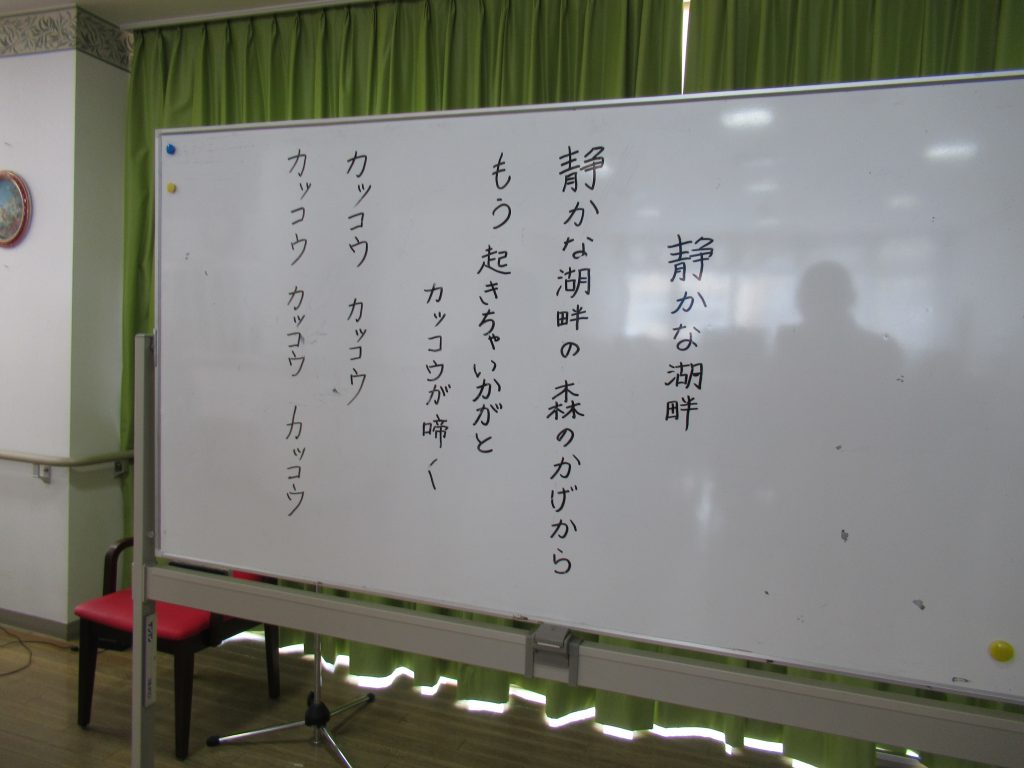 静かな湖畔
静かな湖畔の森のかげから
もう起きちゃいかがと
カッコウが啼く
カッコウ カッコウ
カッコウ カッコウ カッコウ